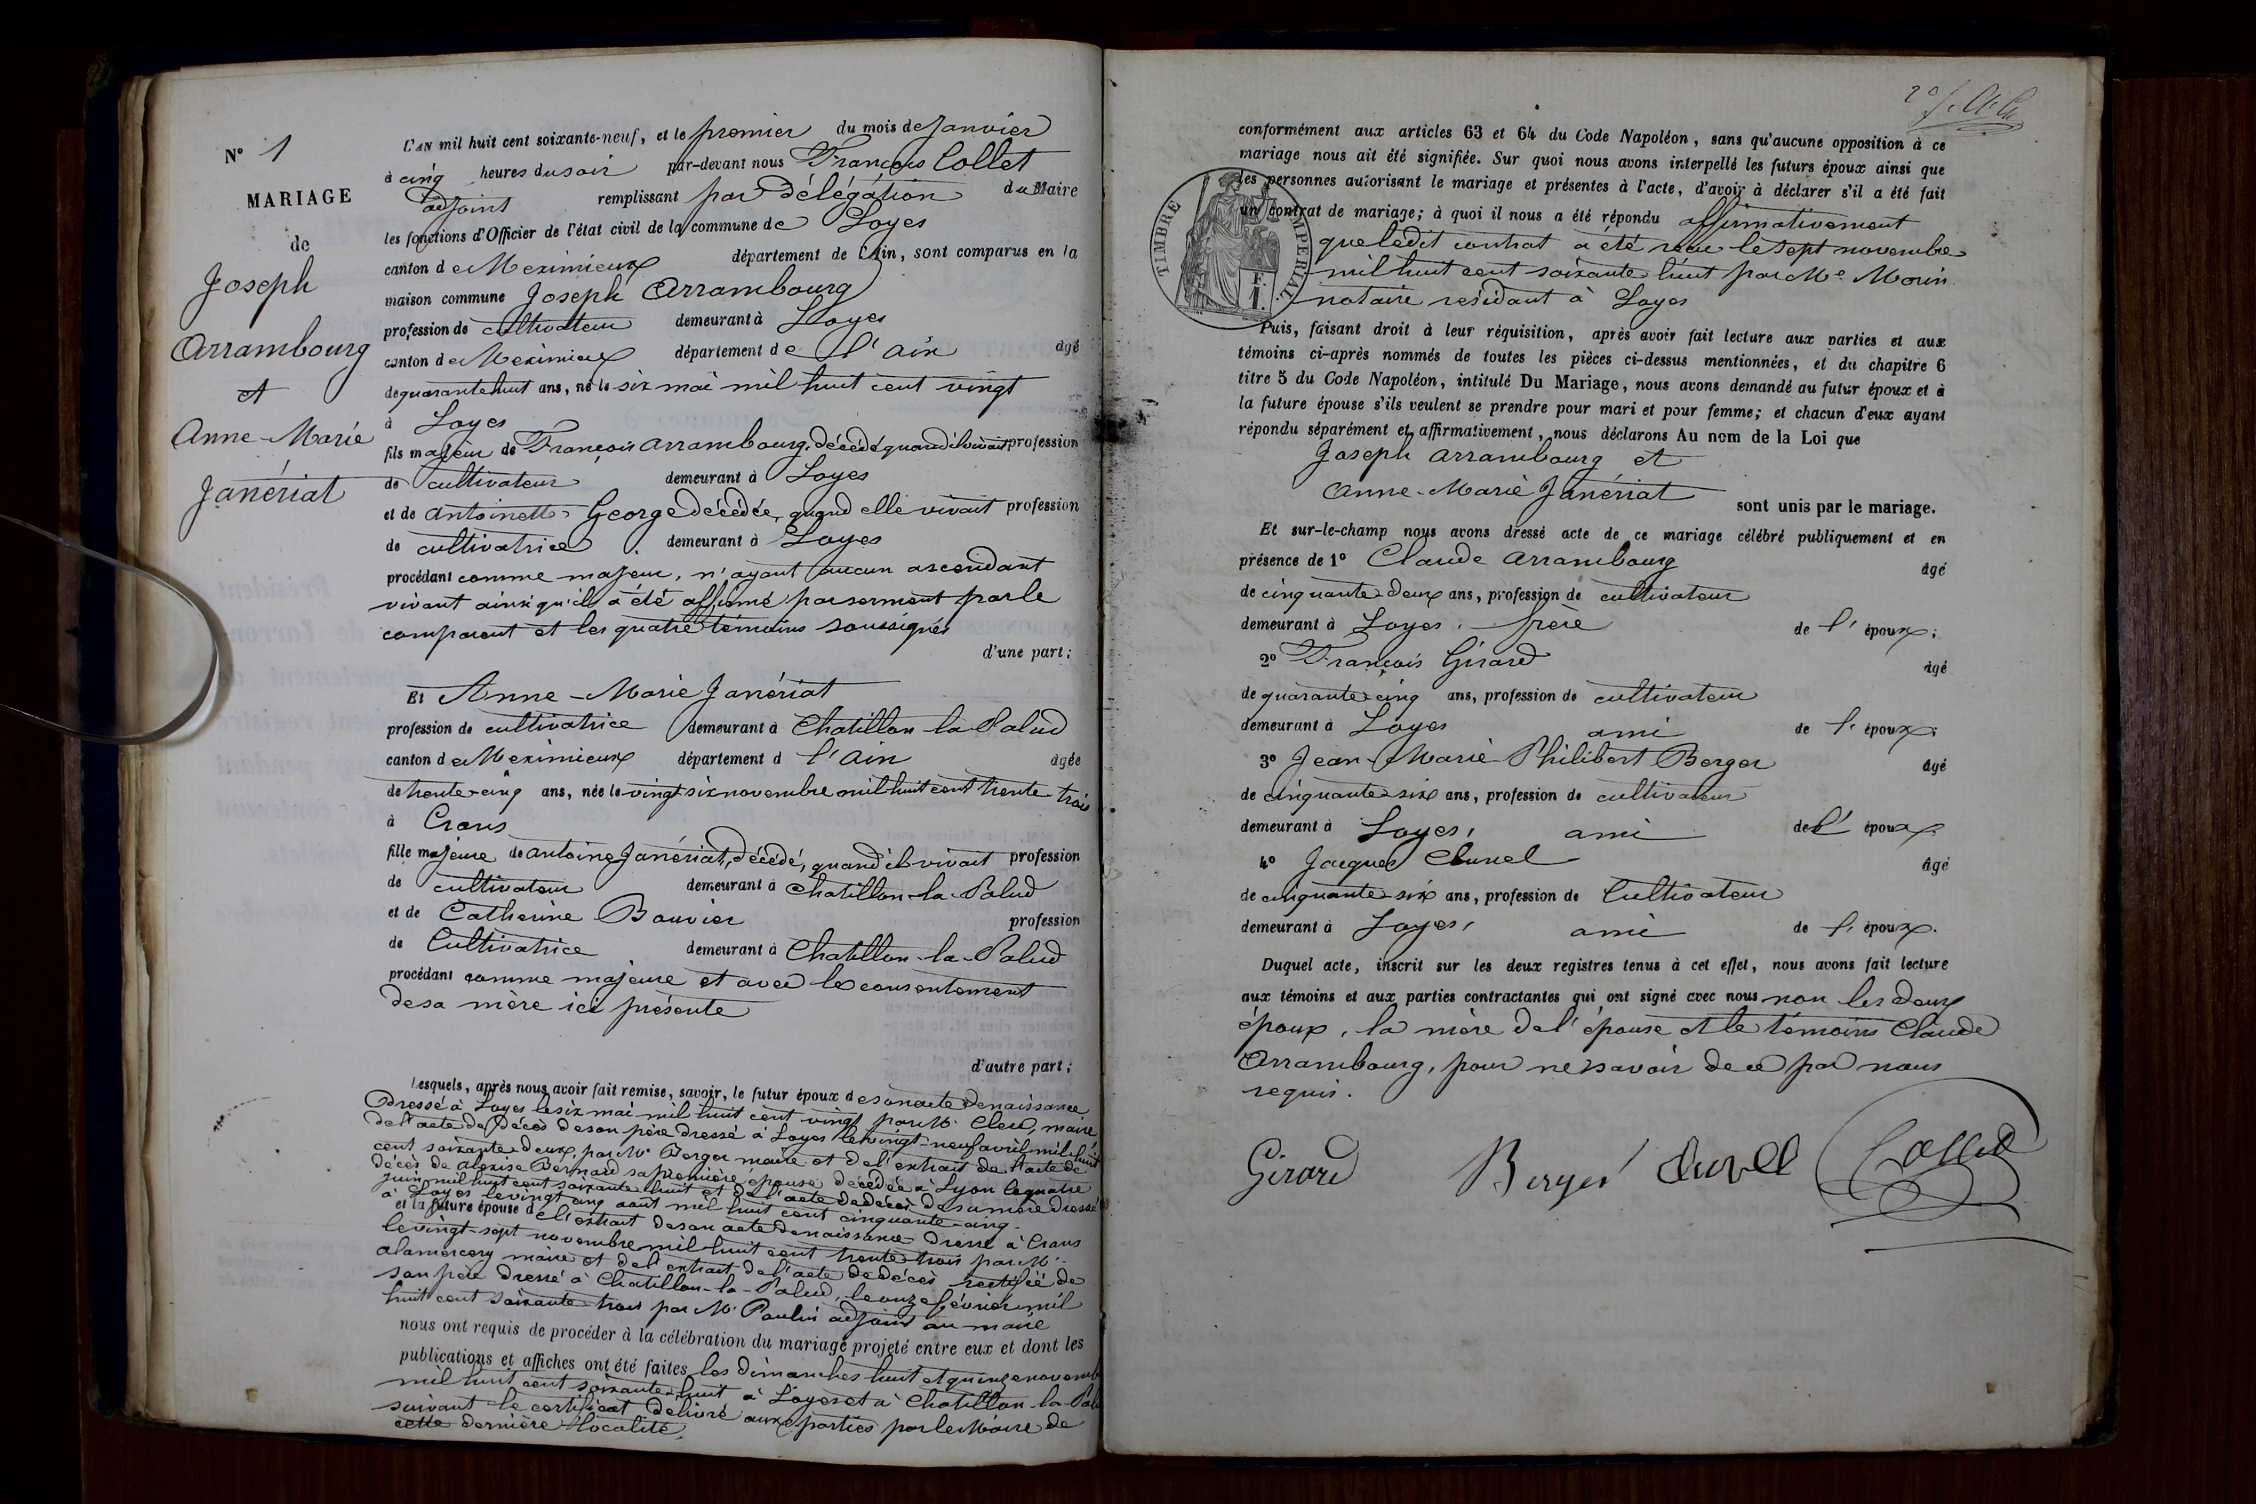 N° 1
MARIAGE
de
Joseph
Arrambourg
et
Anne-Marie
Janériat
L'AN mil huit cent soixante-neuf, et le premier du mois de Janvier
à cinq heures du soir par-devant nous François Collet
adjoint remplissant par délégation du Maire
les fonctions d'Officier de l'état civil de la commune de Loyes
canton de Meximieux département de l'Ain, sont comparus en la
maison commune Joseph Arrambourg
profession de cultivateur demeurant à Loyes
canton de Meximieux département de l'ain agé
de quarante huit ans, né le six mai mil huit cent vingt
à Loyes
fils majeur de François Arrambourg, décédé quand il vivait profession
de cultivateur demeurant à Loyes
et de antoinette George décédée, quand elle vivait profession
de cultivatrice demeurant à Loyes
procédant comme majeur, n'ayant aucun ascendant
vivant ainsi qu'il a été affirmé par serment par le
comparant et les quatre témoins soussignés
d'une part;
Et Anne-Marie Janériat
profession de cultivatrice demeurant à Chatillon-la-Palud
canton de Meximieux département d l'Ain agée
de trente-cinq ans, née le vingt-six novembre mil huit cent trente-trois
à Crans
fille majeure de antoine Janériat, décédé, quand il vivait profession
de cultivateur demeurant à Chatillon-la-Palud
et de Catherine Bouvier profession
de Cultivatrice demeurant à Chatillon-la-Palud
procédant comme majeure et avec le consentement
de sa mère ici présente
d'autre part;
Lesquels, après nous avoir fait remise, savoir, le futur époux de son acte de naissance
dressé à Loyes le six mai mil huit cent vingt par M. maire
de l'acte de décès de son père dressé à Loyes le vingt-neuf avril mil huit
cent soixante deux, par M. Berger maire et de l'extrait de l'acte de
décès de Alexise Bernard sa première épouse décédée à Lyon le quatre
juin mil huit cent soixante huit et de l'acte de décès de sa mère dressé
à Loyes le vingt cinq août mil huit cent cinquante-cinq.
et la future épouse d e l'extrait de son acte de naissance dressé à Crans
le vingt-sept novembre mil huit cent trente-trois par M.
alamercery maire et de l'extrait de l'acte de décès rectifié de
son père dressé à Chatillon-la-Palud, le onze février mil
huit cent soixante trois par M. Paulin adjoint au maire
nous ont requis de procéder à la célébration du mariage projeté entre eux et dont les
publications et affiches ont été faites les dimanches huit et quinze novemb
mil huit cent soixante huit à Loyes et à Chatillon-la-Pal
suivant le certificat délivré aux parties par le Maire de
cette dernière localité.
conformément aux articles 63 et 64 du Code Napoléon, sans qu'aucune opposition à ce
mariage nous ait été signifiée. Sur quoi nous avons interpellé les futurs époux ainsi que
les personnes autorisant le mariage et présentes à l'acte, d'avoir à déclarer s'il a été fait
un contrat de mariage; à quoi il nous a été répondu affirmativement
que ledit contrat a été reçu le sept novembre
mil huit cent soixante huit par Me Morin
notaire résidant à Loyes
TIMBRE IMPERIAL
1 F.
Puis, faisant droit à leur réquisition, après avoir fait lecture aux parties et aux
témoins ci-après nommés de toutes les pièces ci-dessus mentionnées, et du chapitre 6
titre 5 du Code Napoléon, intitulé Du Mariage, nous avons demandé au futur époux et à
la future épouse s'ils veulent se prendre pour mari et pour femme; et chacun d'eux ayant
répondu séparément et affirmativement, nous déclarons Au nom de la Loi que
Joseph arrambourg et
Anne-Marie Janériat sont unis par le mariage.
Et sur-le-champ nous avons dressé acte de ce mariage célébré publiquement et en
présence de 1° Claude Arrambourg âgé
de cinquante-deux ans, profession de cultivateur
demeurant à Loyes, frère de l' époux;
2° François Girard âgé
de quarante-cinq ans, profession de cultivateur
demeurant à Loyes ami de l' époux;
3° Jean-Marie-Philibert Berger âgé
de cinquante-six ans, profession de cultivateur
demeurant à Loyes, ami de l' époux
4° Jacques Clunel âgé
de cinquante-six ans, profession de Cultivateur
demeurant à Loyes, ami de l' époux.
Duquel acte, inscrit sur les deux registres tenus à cet effet, nous avons fait lecture
aux témoins et aux parties contractantes qui ont signé avec nous non les deux
époux, la mère de l'épouse et le témoins Claude
Arrambourg, pour ne savoir de ce par nous
requis.
Girard Berger Collet